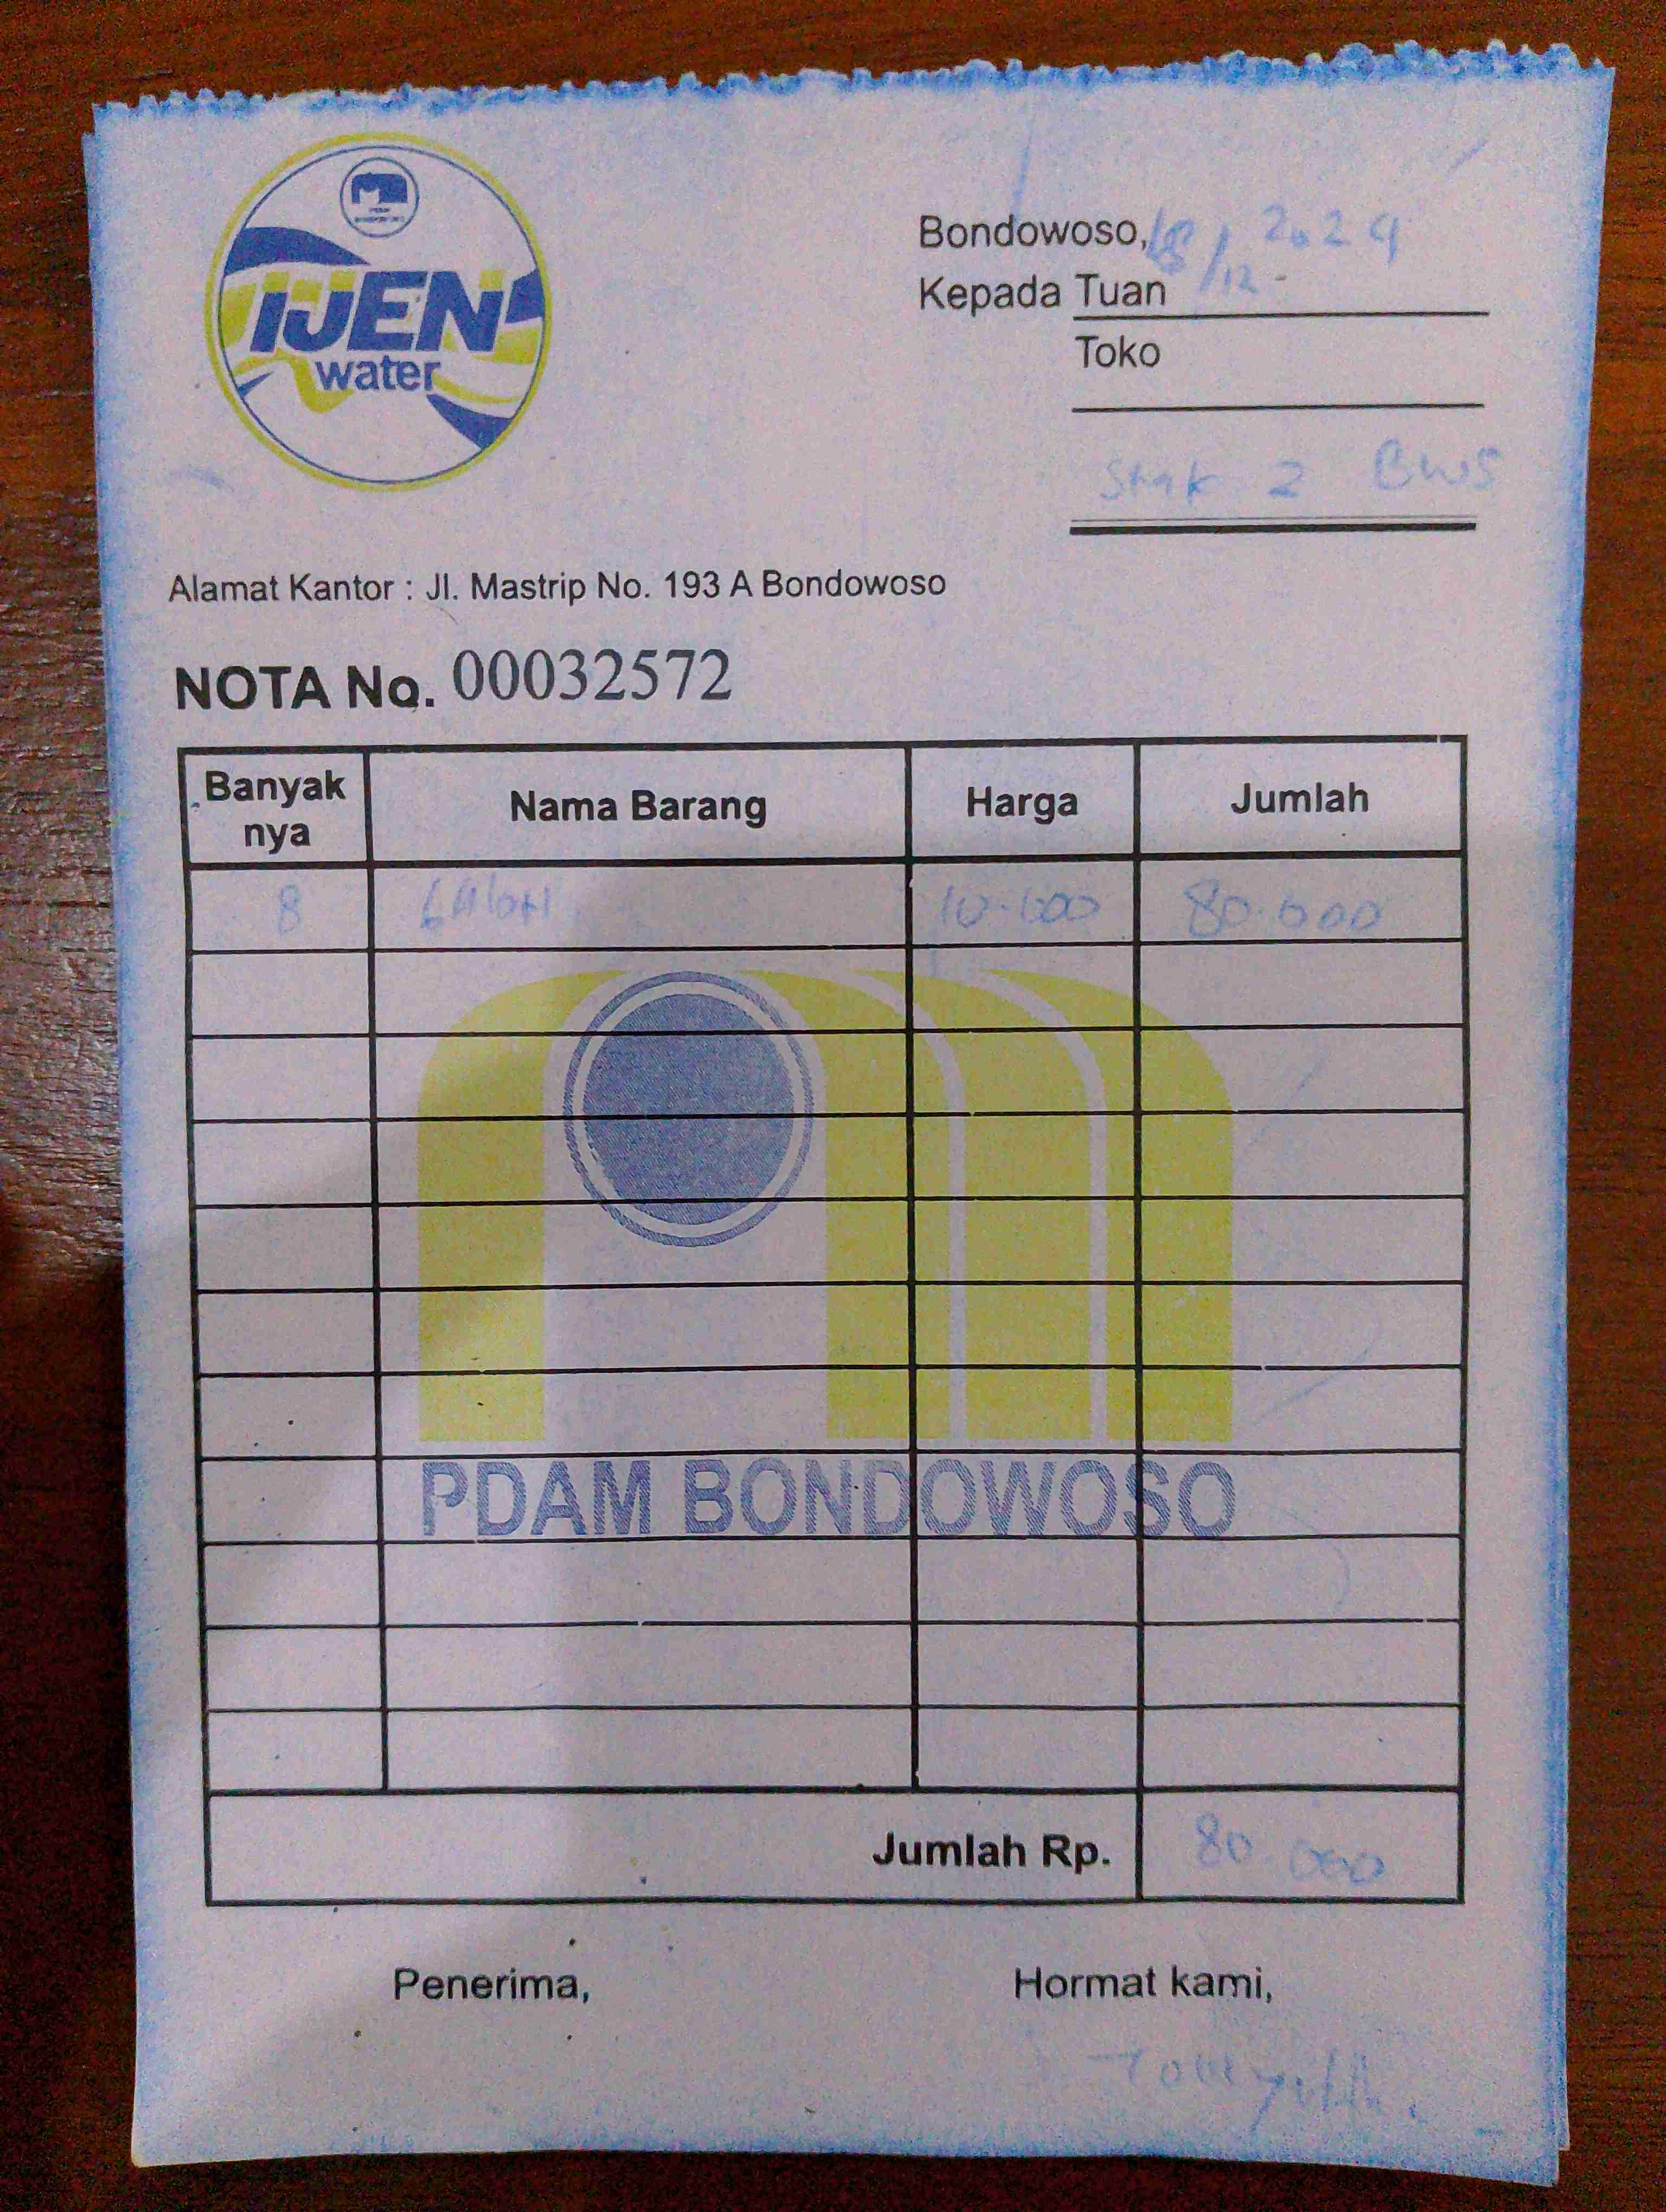 IJEN
water
Bondowoso, 18/12-2024
Kepada Tuan
Toko
2 BWS
Alamat Kantor : Jl. Mastrip No. 193 A Bondowoso
NOTA No. 00032572
Banyak nya Nama Barang Harga Jumlah
8 GAlon 10.000 80.000
PDAM BONDOWOSO
Jumlah Rp. 80.000
Penerima, Hormat kami,